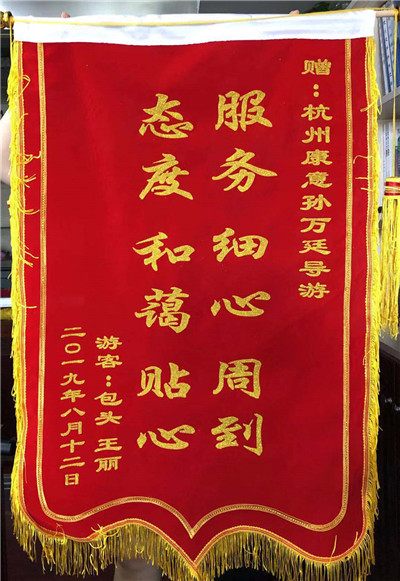 赠：杭州康意孙万廷导游
服务 细心 周到
态度 和蔼 贴心
游客：包头 王丽
二〇一九年八月十二日